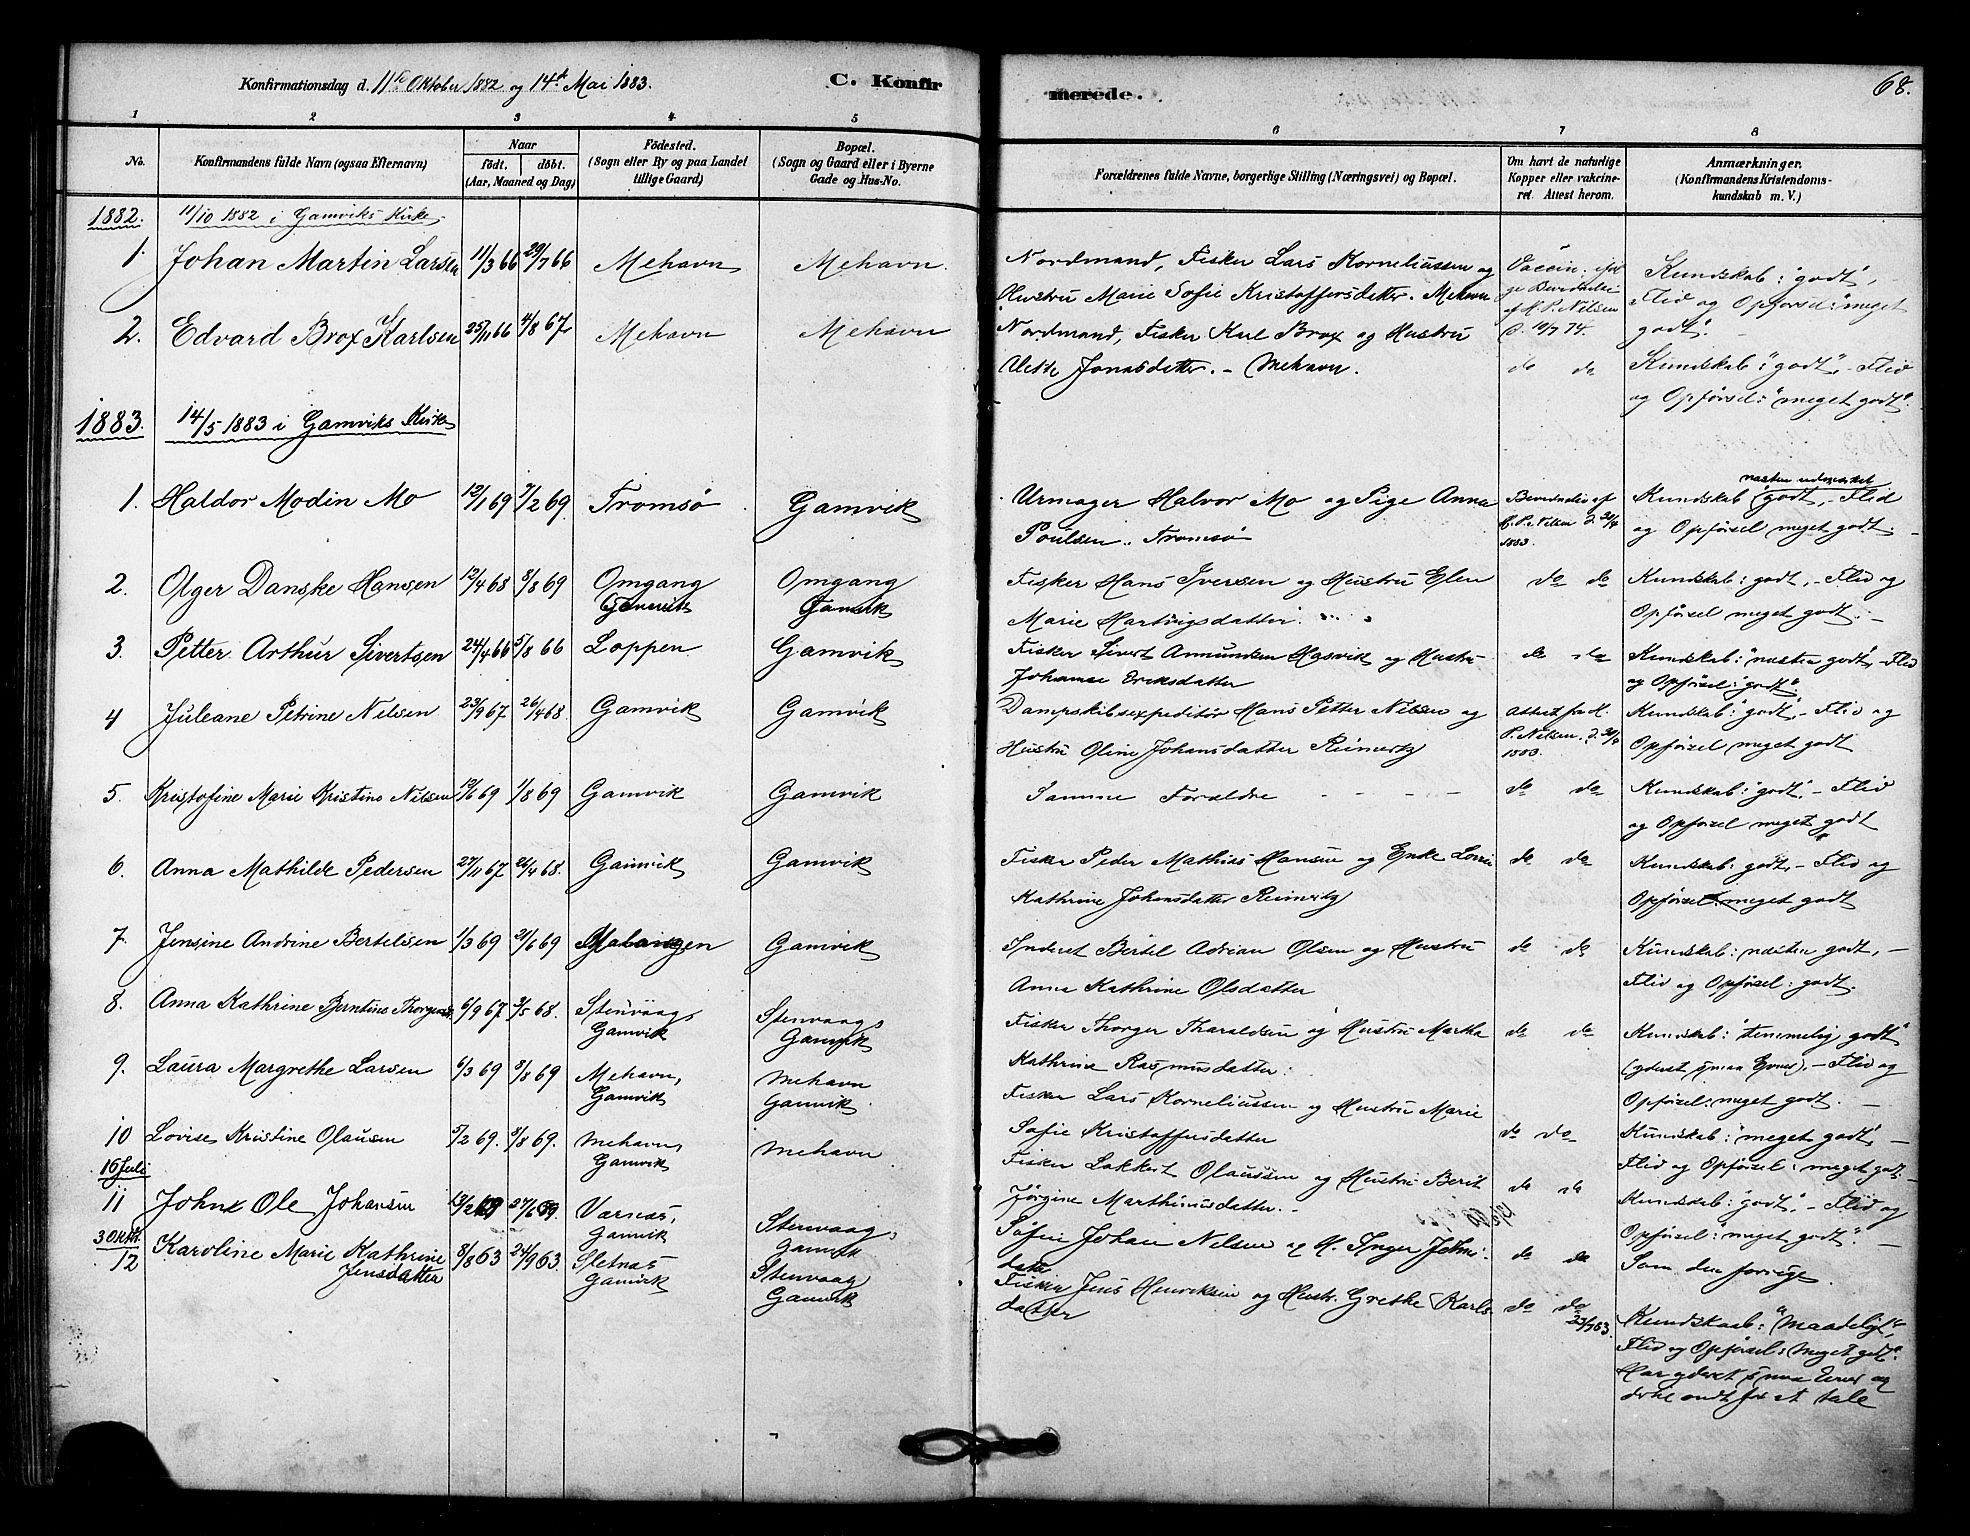 Konfirmationsdag d. 11te Oktober 1882 og 14de Mai 1883.
C. Konfir
merede.
68.
1 2 3 4 5 6 7 8
No.
Konfirmandens fulde Navn (ogsaa Efternavn)
Naar
födt. döbt.
(Aar, Maaned og Dag)
Födested.
(Sogn eller By og paa Landet
tillige Gaard)
Bopæl.
(Sogn og Gaard eller i Byerne
Gade og Hus-No.
Forældrenes fulde Navne, borgerlige Stilling (Næringsvei) og Bopæl.
Om havt de naturlige
Kopper eller vakcine-
ret. Attest herom.
Anmærkninger.
(Konfirmandens Kristendoms-
kundskab m. V.)
1882. 11/10 1882 i Gamviks Kirke
1. Johan Martin Larsen 11/3 66 29/7 66 Mehavn Mehavn.
Nordmand, Fisker Lars Korneliussen og
Hustru Marie Sofie Kristoffersdatter. Mehavn
Vaccin.
P. Nilsen
Kundskab: "godt",
Flid og Opførsel: "meget
godt".
2. Edvard Brox Karlsen 25/11 66 4/8 67 Mehavn Mehavn
Nordmand, Fisker Karl Brox og Hustru
Jonasdatter. - Mehavn.
do do
Kundskab: "godt", - Flid
og Opførsel: "meget godt".
1883. 14/5 1883 i Gamviks Kirke
1. Haldor Modin Mo 12/1 69 7/2 69 Tromsø Gamvik
Urmager Halvor Mo og Pige Anna
Poulsen.. Tromsø
P. Nilsen d. 30/4
1883.
næsten udmærket
Kundskab "godt", - Flid
og Opførsel meget godt.
2. Olger Danske Hansen 12/4 68 8/8 69 Omgang Omgang
Gamvik Gamvik
Fisker Hans Iversen og Hustru Elen
Marie Hartvigsdatter.
do do
Kundskab: godt, - Flid og
Opførsel meget godt. -
3. Petter Arthur Sivertsen 24/4 66 5/8 66 Loppen Gamvik
Fisker Sivert Amundsen Hasvik og Hustru
Johanne Eriksdatter
do do
Kundskab: "næsten godt", - Flid
og Opførsel: "godt"
4 Juleane Petrine Nilsen 23/9 67 26/4 68 Gamvik Gamvik
Dampskibsexpeditør Hans Petter Nilsen og
Hustru Oline Johansdatter Reinertz
Attest fra H.
P. Nilsen. d. 30/4
1883.
Kundskab: "godt", - Flid og
Opførsel meget godt
5. Kristofine Marie Kristine Nilsen 12/6 69 1/8 69 Gamvik Gamvik
Samme Forældre - - - -
do do
Kundskab: "godt", - Flid
og Opførsel meget godt
6. Anna Mathilde Pedersen 27/11 67 26/4 68. Gamvik Gamvik
Fisker Peder Mathias Hansen og Enke
Kathrine Johansdatter Reinertz
do do
Kundskab: godt, - Flid og
Opførsel meget godt
7. Jensine Andrine Bertelsen 1/3 69 21/6 69 Malangen Gamvik
Inderst Bertel Adrian Olsen og Hustru
Anna Kathrine Olsdatter
do do
Kundskab: næsten godt, -
Flid og Opførsel: godt.
8. Anna Kathrine Berntine Thorgersen 6/9 67 3/5 68. Stenvaag, Stenvaag,
Gamvik Gamvik
Fisker Thorger Tharaldsen og Hustru Martha
Kathrine Rasmusdatter.
do do
Kundskab: "temmelig godt"
(yderst smaa Evner), - Flid og
Opførsel: meget godt. -
9. Laura Margrethe Larsen 6/3 69 8/8 69 Mehavn, Mehavn
Gamvik Gamvik
Fisker Lars Korneliussen og Hustru Marie
Sofie Kristoffersdatter
do do
Kundskab: "meget godt", -
Flid og Opførsel: meget godt. -
10 Lovise Kristine Olausen 5/2 69. 8/8 69. Mehavn, Mehavn
Gamvik
Fisker Lokkert Olaussen og Hustru Berit
Jørgine Marthinusdatter. -
do do
Kundskab: "godt", - Flid og
Opførsel: "meget godt". -
16 Juli
11 Ole Johansen 13/2 69 27/6 69. Værnæs, Stenvaag,
Gamvik Gamvik
Johan Nilsen og H. Inger
datter
do do
Som den forrige.
30 Okt.
12 Karoline Marie Kathrine 8/8 63 24/9 63. Sletnæs Stenvaag
Jensdatter Gamvik Gamvik
Fisker Jens Henriksen og Hustr. Grethe Karls
datter
do do
23/7 63.
Kundskaab: "Maadeligt",
Flid og Opførsel: Meget godt.
Har yderst smaa Evner og
ondt for at tale